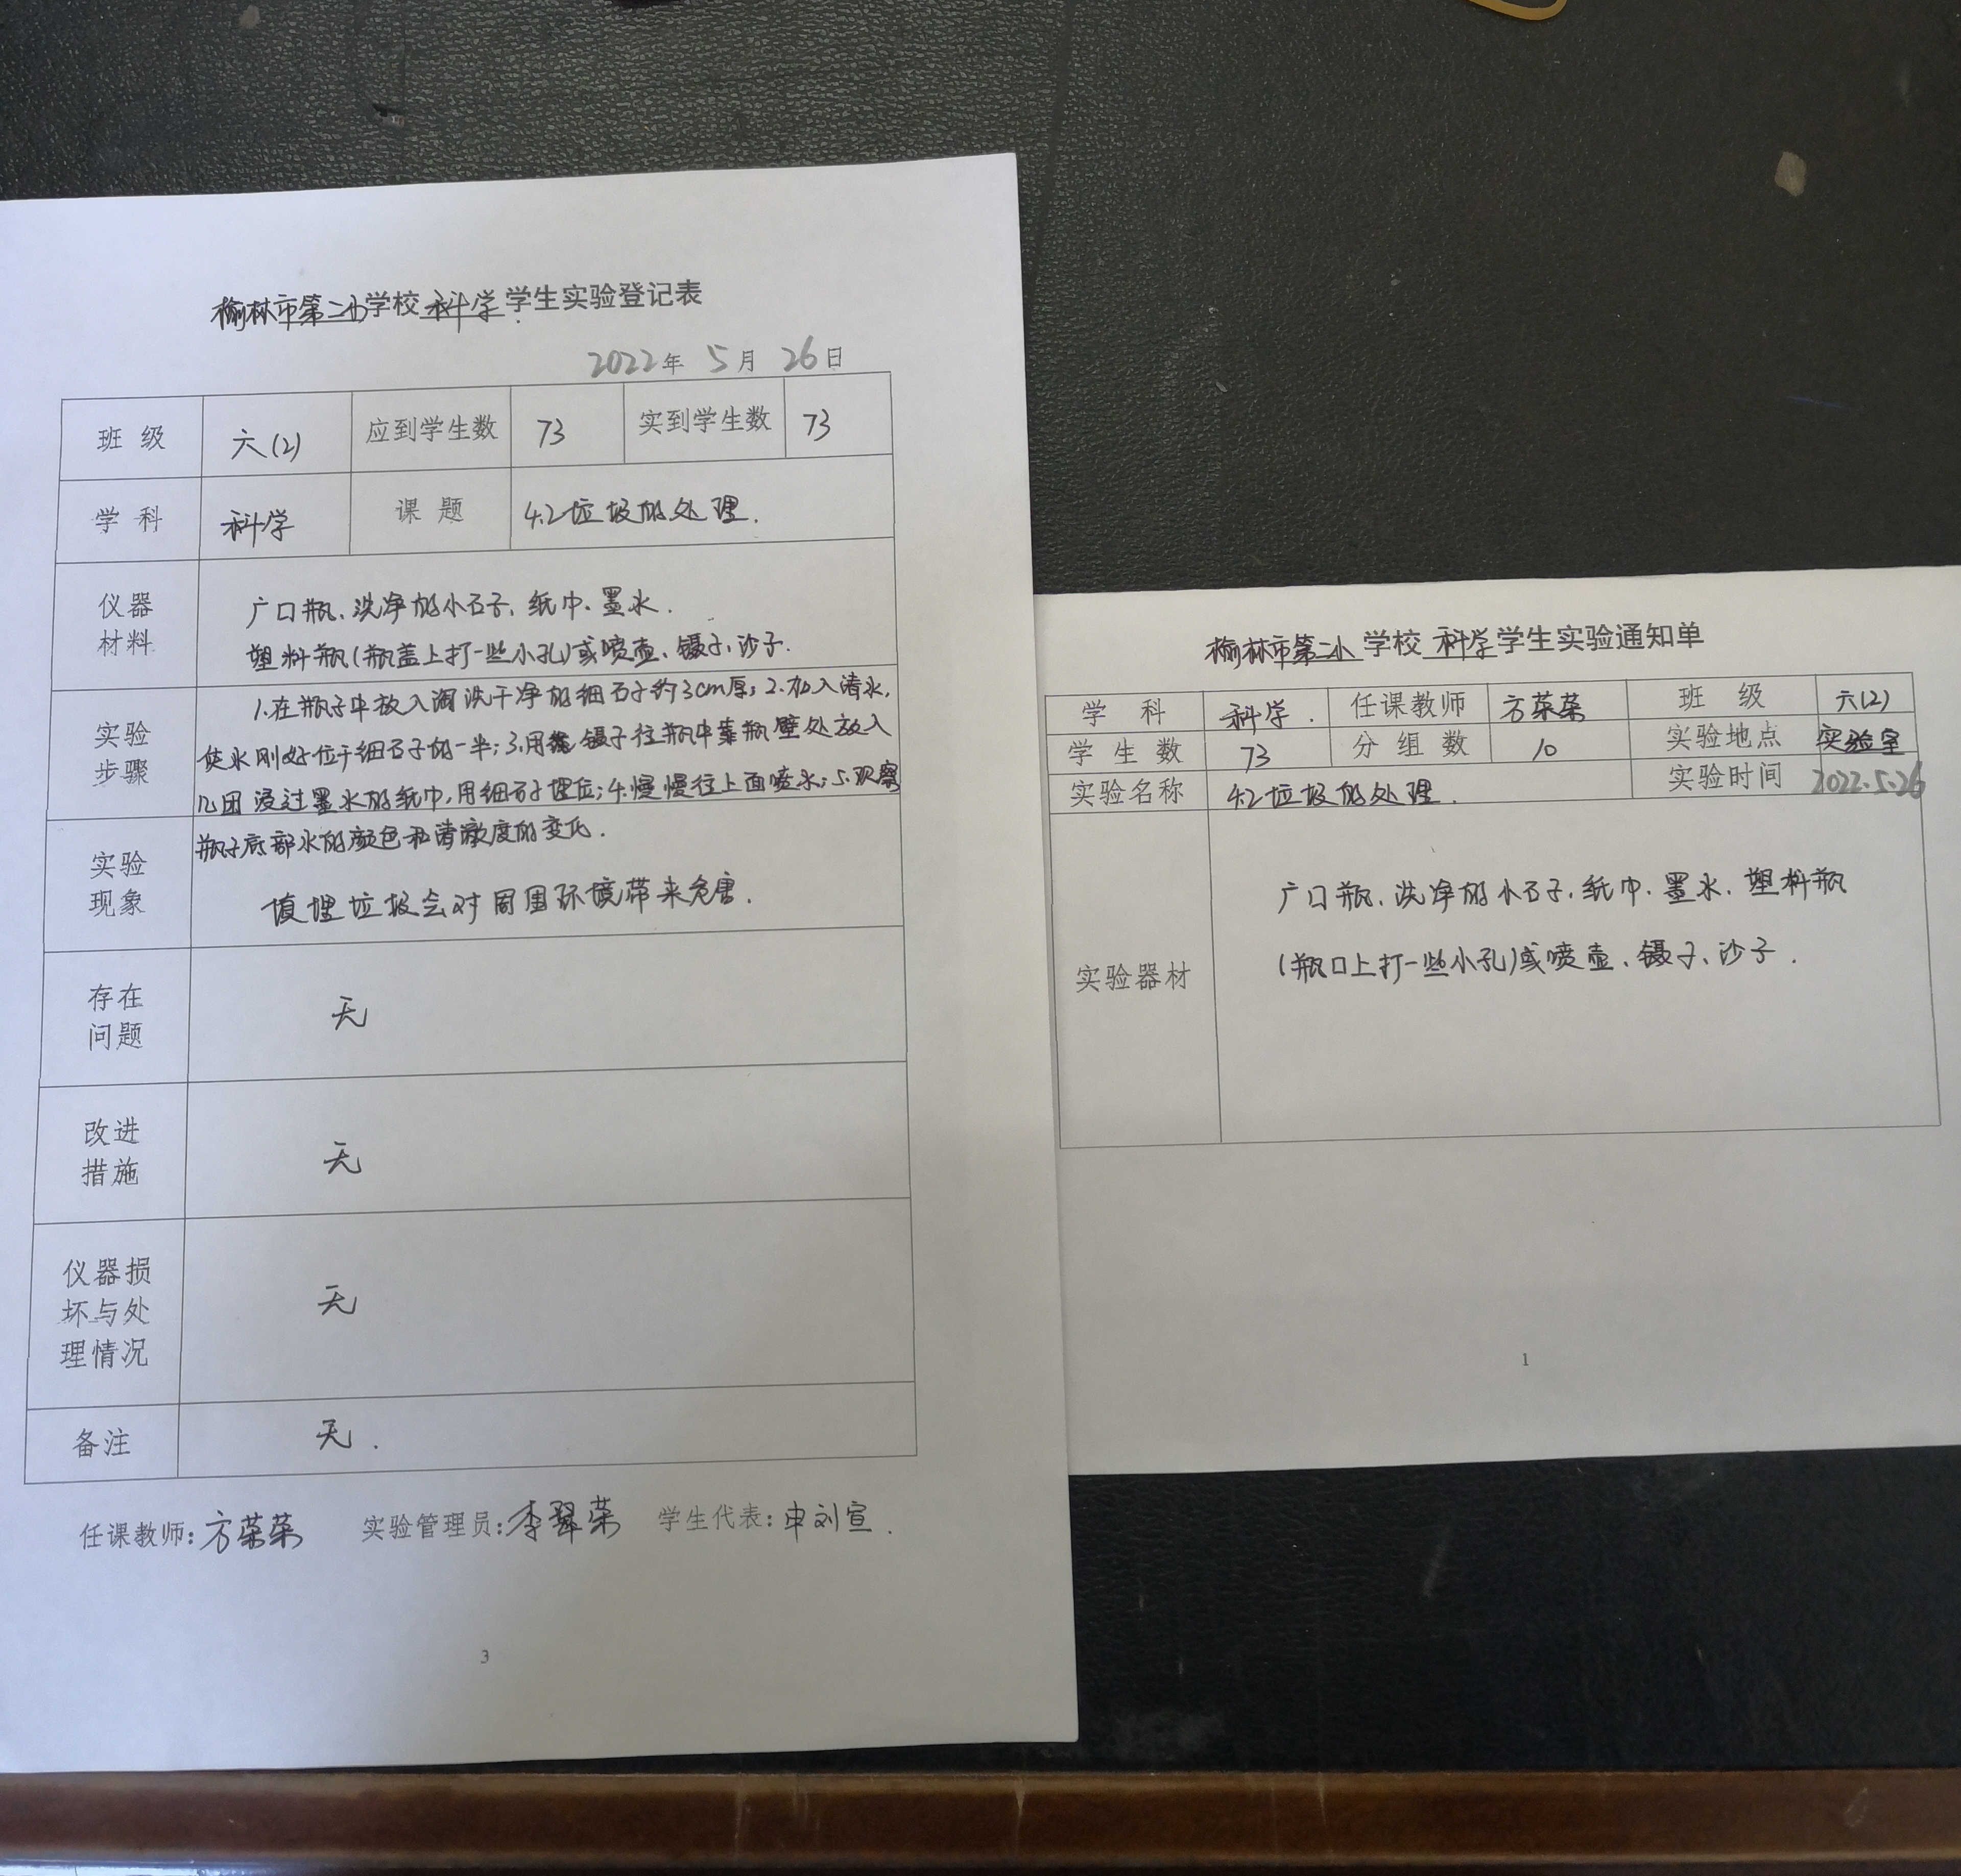 榆林市第二小学校 科学 学生实验登记表
2022年 5月 26日
班 级 六(2) 应到学生数 73 实到学生数 73
学 科 科学 课 题 4.2垃圾的处理.
仪器
材料
广口瓶、洗净的小石子、纸巾、墨水.
塑料瓶(瓶盖上打一些小孔)或喷壶、镊子、沙子.
实验
步骤
1.在瓶子中放入淘洗干净的细石子约3cm厚; 2.加入清水,
使水刚好位于细石子的一半; 3.用镊子往瓶中靠瓶壁处放入
几团浸过墨水的纸巾,用细石子埋住; 4.慢慢往上面喷水; 5.观察
瓶子底部水的颜色和清澈度的变化.
实验
现象
填埋垃圾会对周围环境带来危害.
存在
问题
无
改进
措施
无
仪器损
坏与处
理情况
无
备注 无.
任课教师: 方荣荣 实验管理员: 李翠荣 学生代表: 申刘宣.
3
榆林市第二小 学校 科学 学生实验通知单
学 科 科学. 任课教师 方荣荣 班 级 六(2)
学 生 数 73 分 组 数 10 实验地点 实验室
实验名称 4.2垃圾的处理. 实验时间 2022.5.26
实验器材
广口瓶、洗净的小石子、纸巾、墨水、塑料瓶
(瓶口上打一些小孔)或喷壶、镊子、沙子.
1